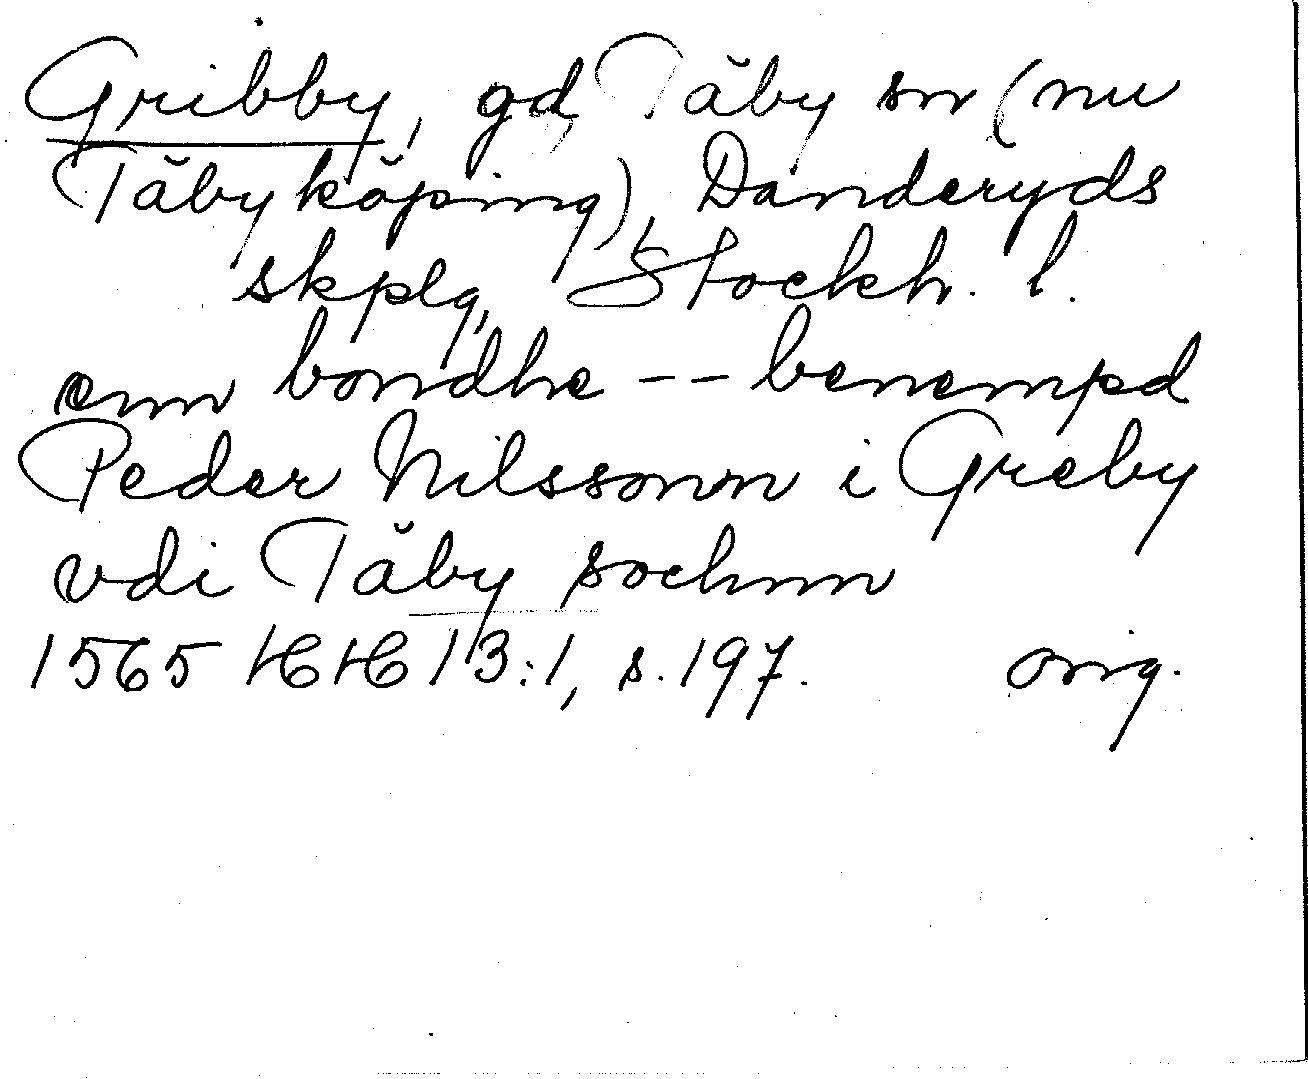 Gribby, gd, Täby sn (nu
Täby köping), Danderyds
skplg, Stockh. l.
enn bondhe -- benempd
Peder Nilssonn i Greby
vdi Täby sochnn
1565 HH 13:1, s. 197. orig.